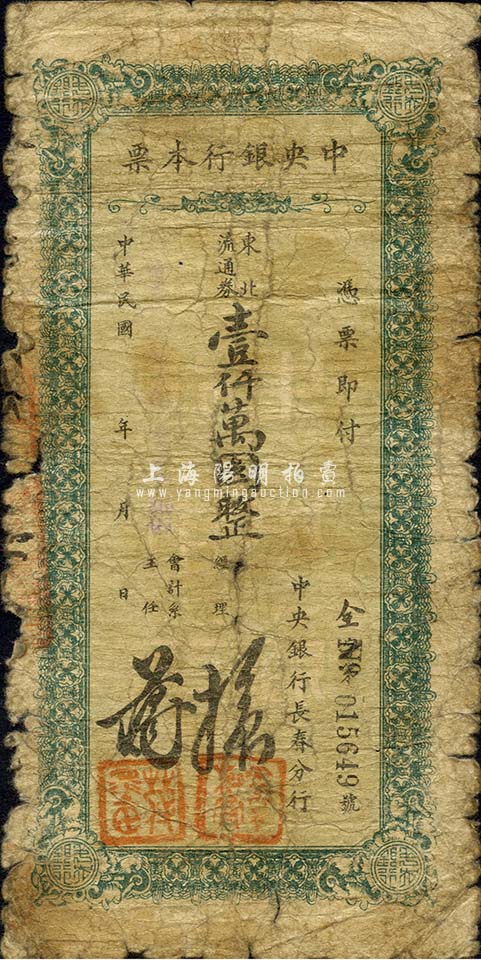 中央銀行本票
憑票即付
全字第015649號
中央銀行長春分行
東北
流通券
壹仟萬圓整
經理
會計系
主任
中華民國 年 月 日
上海陽明拍賣
www.yangmingauction.com